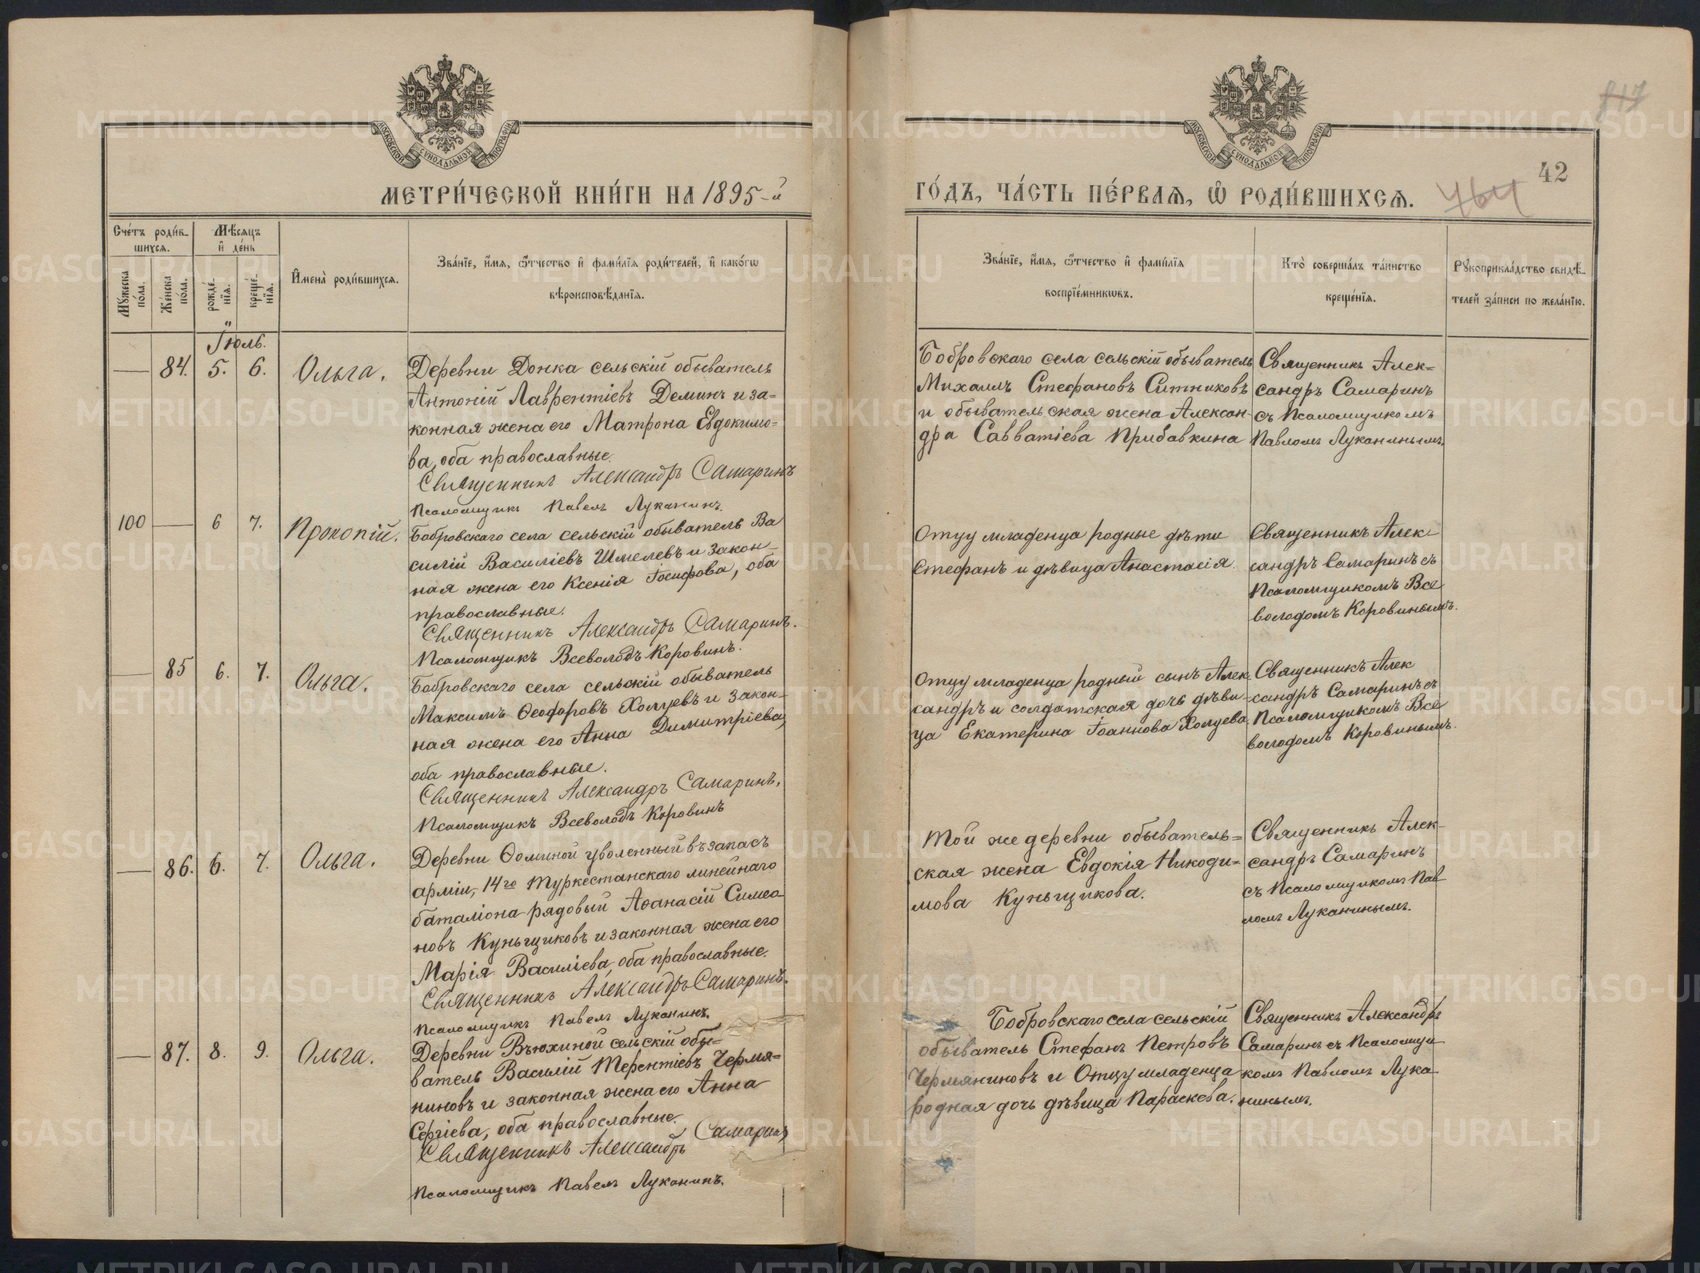 МЕТРИ́ЧЕСКОЙ КНИ́ГИ НА 1895-й
ГО́ДЪ, ЧА́СТЬ ПЕ́РВАЯ, Ѿ РОДИ́ВШИХСЯ.
42
764
Сче́тъ роди́в-
шихся.
Му́жеска по́ла.
Же́нска по́ла.
Мѣ́сяцъ
и҆ де́нь
рожде́-
нїя.
креще́-
нїя.
И҆мена̀ роди́вшихся.
Зва́нїе, и҆́мя, ѻ҆́тчество и҆ фами́лїя роди́телей, и҆ како́гѡ
вѣроисповѣ́данїя.
Зва́нїе, и҆́мя, ѻ҆́тчество и҆ фами́лїя
воспрїе́мниковъ.
Кто̀ соверша́лъ та́инство
креще́нїя.
Рꙋкоприкла́дство свидѣ́-
телей за́писи по жела́нїю.
Іюль.
— 84. 5. 6. Ольга.
Деревни Донка сельскій обыватель
Антоній Лаврентіевъ Деминъ и за-
конная жена его Матрона Евдокимо-
ва, оба православные.
Священникъ Александръ Самаринъ
Псаломщикъ Павелъ Луканинъ.
Бобровскаго села сельскій обыватель
Михаилъ Стефановъ Ситниковъ
и обывательская жена Алексан-
дра Савватіева Прибавкина
Священникъ Алек-
сандръ Самаринъ
съ Псаломщикомъ
Павломъ Луканинымъ.
100 — 6 7. Прокопій.
Бобровскаго села сельскій обыватель Ва
силій Васильевъ Шмелевъ и закон
ная жена его Ксенія Іосифова, оба
православные.
Священникъ Александръ Самаринъ.
Псаломщикъ Всеволодъ Коровинъ.
Отцу младенца родные дѣти
Стефанъ и дѣвица Анастасія.
Священникъ Алек
сандръ Самаринъ съ
Псаломщикомъ Все
володомъ Коровинымъ.
— 85 6. 7. Ольга.
Бобровскаго села сельскій обыватель
Максимъ Ѳеодоровъ Холуевъ и закон-
ная жена его Анна Димитріева,
оба православные.
Священникъ Александръ Самаринъ.
Псаломщикъ Всеволодъ Коровинъ
Отцу младенца родный сынъ Алек
сандръ и солдатская дочь дѣви-
ца Екатерина Іоаннова Холуева.
Священникъ Алек
сандръ Самаринъ съ
Псаломщикомъ Все
володомъ Коровинымъ.
— 86. 6. 7. Ольга.
Деревни Ѳоминой уволенный въ запасъ
арміи, 14го Туркестанскаго линейнаго
баталіона рядовый Аѳанасій Симео
новъ Куньщиковъ и законная жена его
Марія Василіева, оба православные.
Священникъ Александръ Самаринъ.
Псаломщикъ Павелъ Луканинъ.
Той же деревни обыватель=
ская жена Евдокія Никоди=
мова Куньщикова.
Священникъ Алек-
сандръ Самаринъ
съ Псаломщикомъ Пав
ломъ Луканинымъ.
— 87. 8. 9. Ольга.
Деревни Вьюхиной сельскій обы=
ватель Василій Терентіевъ Чермя=
ниновъ и законная жена его Анна
Сергіева, оба православные.
Священникъ Александръ Самаринъ
Псаломщикъ Павелъ Луканинъ.
Бобровскаго села сельскій
обыватель Стефанъ Петровъ
Чермяниновъ и Отцу младенца
родная дочь дѣвица Параскева.
Священникъ Александръ
Самаринъ съ Псаломщи-
комъ Павломъ Лука-
нинымъ.
METRIKI.GASO-URAL.RU